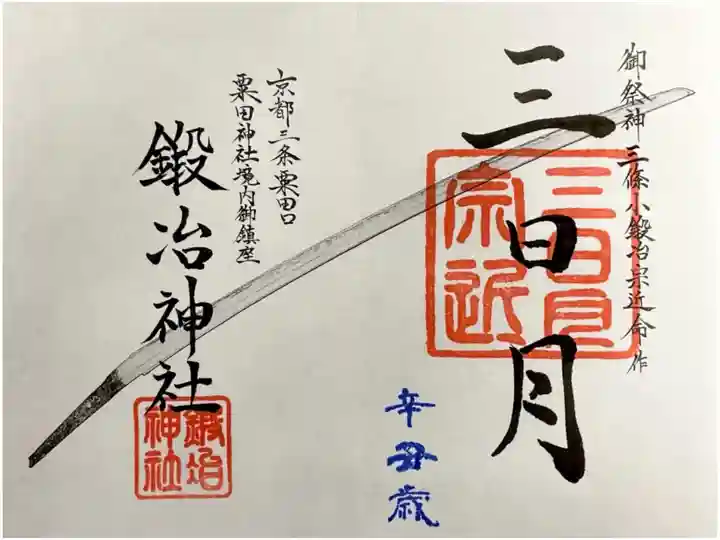 御祭神三條小鍛冶宗近命作
三日月
三日月
宗近
京都三条粟田口
粟田神社境内御鎮座
鍛冶神社
鍛冶
神社
辛丑歳